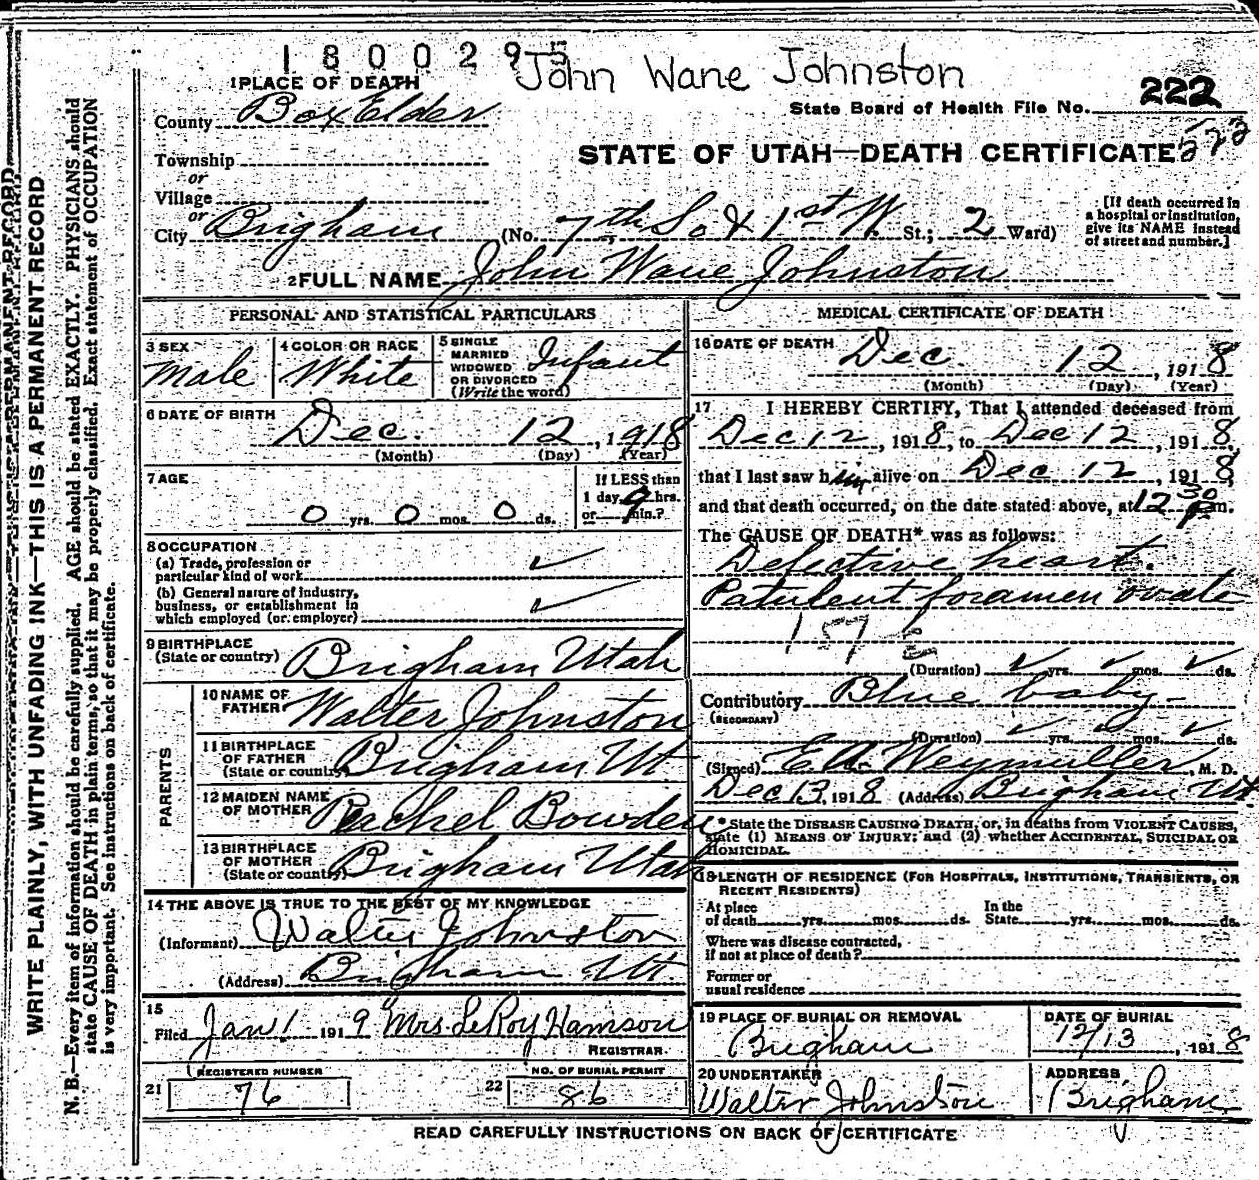 1800295
John Wane Johnston
1 PLACE OF DEATH
State Board of Health File No. 222
County Box Elder
STATE OF UTAH—DEATH CERTIFICATE
Township
or
Village
or
City Brigham (No. 7th So & 1st W. St.; 2 Ward)
[If death occurred in
a hospital or institution,
give its NAME instead
of street and number.]
2 FULL NAME John Wane Johnston
PERSONAL AND STATISTICAL PARTICULARS
3 SEX Male
4 COLOR OR RACE White
5 SINGLE
MARRIED
WIDOWED
OR DIVORCED
(Write the word) Infant
6 DATE OF BIRTH
Dec. 12, 1918
(Month) (Day) (Year)
7 AGE
0 yrs. 0 mos. 0 ds.
If LESS than
1 day, 9 hrs.
or min.?
8 OCCUPATION
(a) Trade, profession or
particular kind of work ✓
(b) General nature of industry,
business, or establishment in
which employed (or employer) ✓
9 BIRTHPLACE
(State or country) Brigham Utah
PARENTS
10 NAME OF
FATHER Walter Johnston
11 BIRTHPLACE
OF FATHER
(State or country) Brigham Ut
12 MAIDEN NAME
OF MOTHER Rachel Bowden
13 BIRTHPLACE
OF MOTHER
(State or country) Brigham Utah
14 THE ABOVE IS TRUE TO THE BEST OF MY KNOWLEDGE
(Informant) Walter Johnston
(Address) Brigham Ut
15
Filed Jan 1 1919 Mrs. LeRoy Hamson
REGISTRAR
21 REGISTERED NUMBER
76
22 NO. OF BURIAL PERMIT
86
MEDICAL CERTIFICATE OF DEATH
16 DATE OF DEATH
Dec. 12, 1918
(Month) (Day) (Year)
17 I HEREBY CERTIFY, That I attended deceased from
Dec 12, 1918, to Dec 12, 1918,
that I last saw him alive on Dec 12, 1918,
and that death occurred, on the date stated above, at 12 30 P m.
The CAUSE OF DEATH* was as follows:
Defective heart.
Patulent foramen ovale
157 E
(Duration) ✓ yrs. ✓ mos. ✓ ds.
Contributory Blue baby
(SECONDARY)
(Duration) ✓ yrs. ✓ mos. ✓ ds.
(Signed) E.A. Weymuller, M. D.
Dec 13, 1918 (Address) Brigham Ut
* State the DISEASE CAUSING DEATH, or, in deaths from VIOLENT CAUSES,
state (1) MEANS OF INJURY; and (2) whether ACCIDENTAL, SUICIDAL OR
HOMICIDAL.
18 LENGTH OF RESIDENCE (FOR HOSPITALS, INSTITUTIONS, TRANSIENTS, OR
RECENT RESIDENTS)
At place
of death yrs. mos. ds.
In the
State yrs. mos. ds.
Where was disease contracted,
if not at place of death?
Former or
usual residence
19 PLACE OF BURIAL OR REMOVAL
Brigham
DATE OF BURIAL
12/13, 1918
20 UNDERTAKER
Walter Johnston
ADDRESS
Brigham
READ CAREFULLY INSTRUCTIONS ON BACK OF CERTIFICATE
WRITE PLAINLY, WITH UNFADING INK—THIS IS A PERMANENT RECORD
N. B.—Every item of information should be carefully supplied. AGE should be stated EXACTLY. PHYSICIANS should
state CAUSE OF DEATH in plain terms, so that it may be properly classified. Exact statement of OCCUPATION
is very important. See instructions on back of certificate.